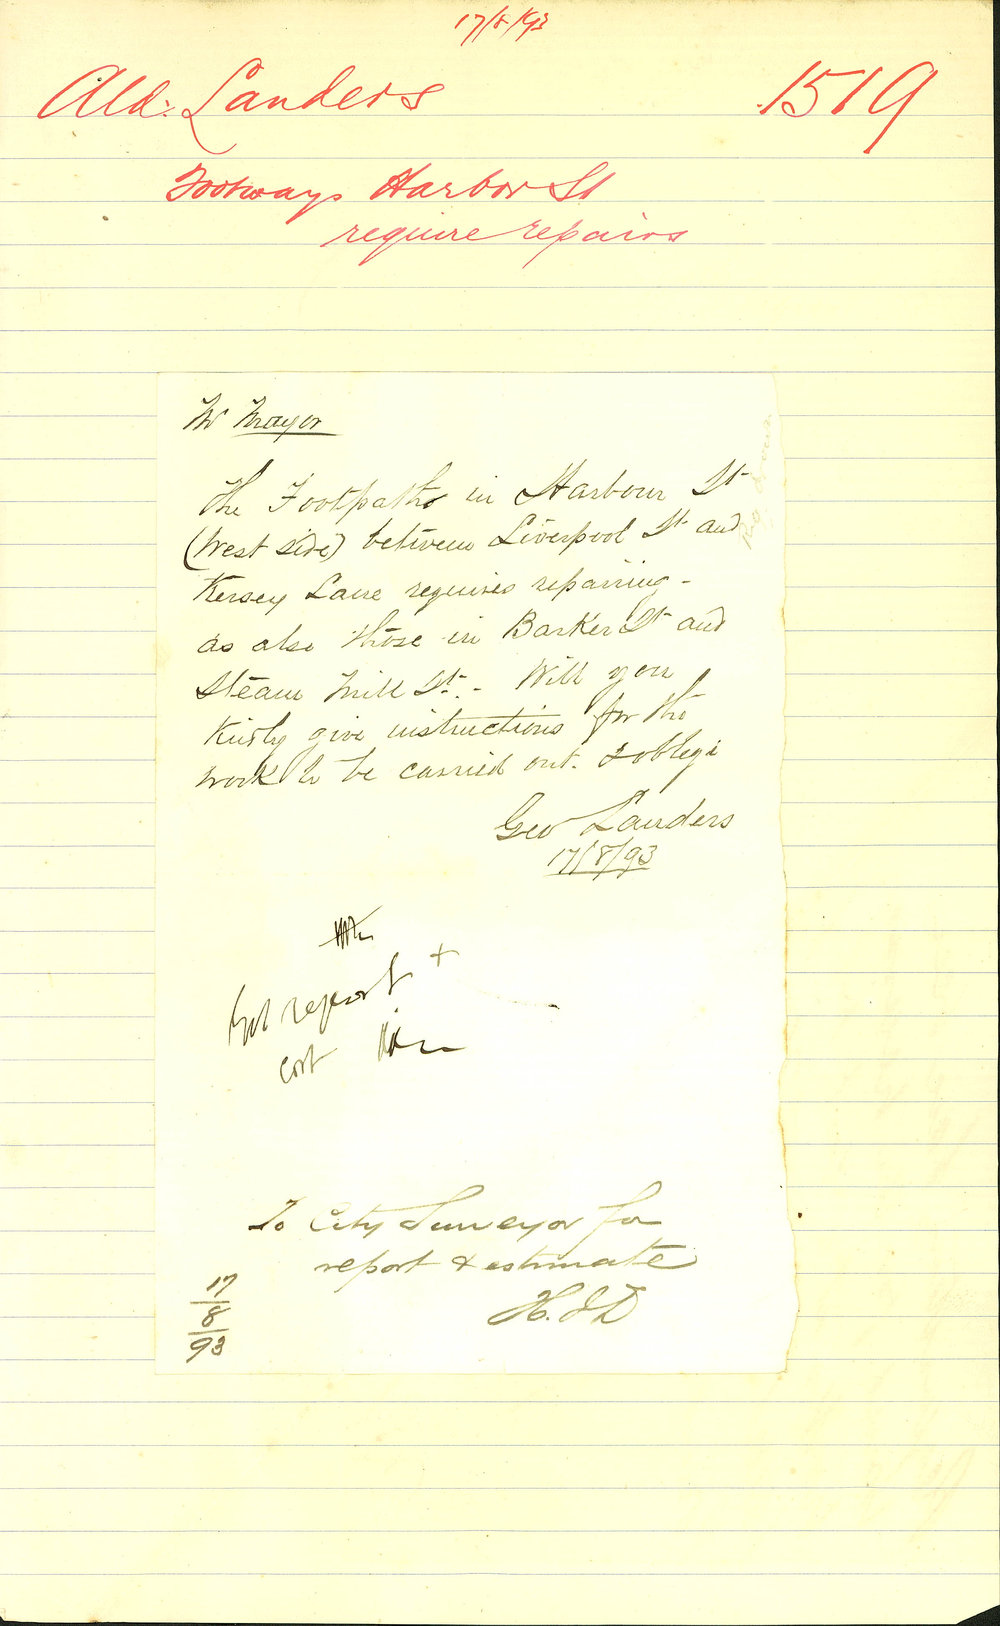 17/8/93
Ald. Landers 1519
Footways Harbor St
require repairs
Mr Mayor
The Footpaths in Harbour St
(West Side) between Liverpool St and
Kersey Lane requires repairing -
as also those in Barker St and
Steam Mill St. - Will you
Kindly give instructions for the
work to be carried out. & oblege
Geo Landers
17/8/93
report +
cost
To City Surveyor for
report & estimate
17
8
93